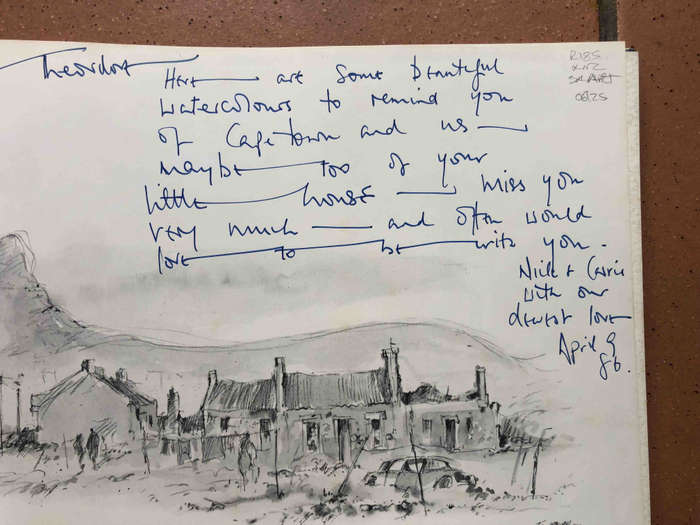 Theordore
Here are some beautiful
watercolours to remind you
of Capetown and us
maybe too of your
little house miss you
very much and often would
love to be with you.
Nick & Carrie
with our
dearest love
April 9
86.
R185
0825